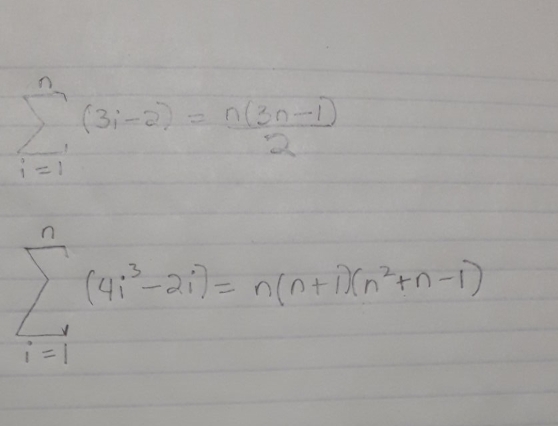 n
∑ (3i-2) = n(3n-1)/2
i=1
n
∑ (4i³-2i) = n(n+1)(n²+n-1)
i=1